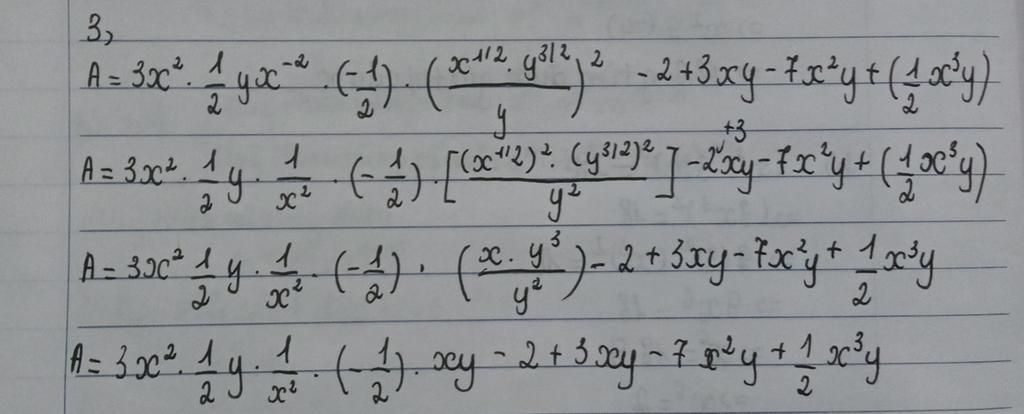 3,
A = 3x² · 1/2 yx⁻² · (-1/2) · (x^1/2 · y^3/2 / y)² - 2 + 3xy - 7x²y + (1/2 x³y)
A = 3x² · 1/2 y · 1/x² · (-1/2) · [(x^1/2)² · (y^3/2)² / y²] - 2 +3 xy - 7x²y + (1/2 x³y)
A = 3x² 1/2 y · 1/x² · (-1/2) · (x · y³ / y²) - 2 + 3xy - 7x²y + 1/2 x³y
A = 3x² · 1/2 y · 1/x² · (-1/2) · xy - 2 + 3xy - 7x²y + 1/2 x³y